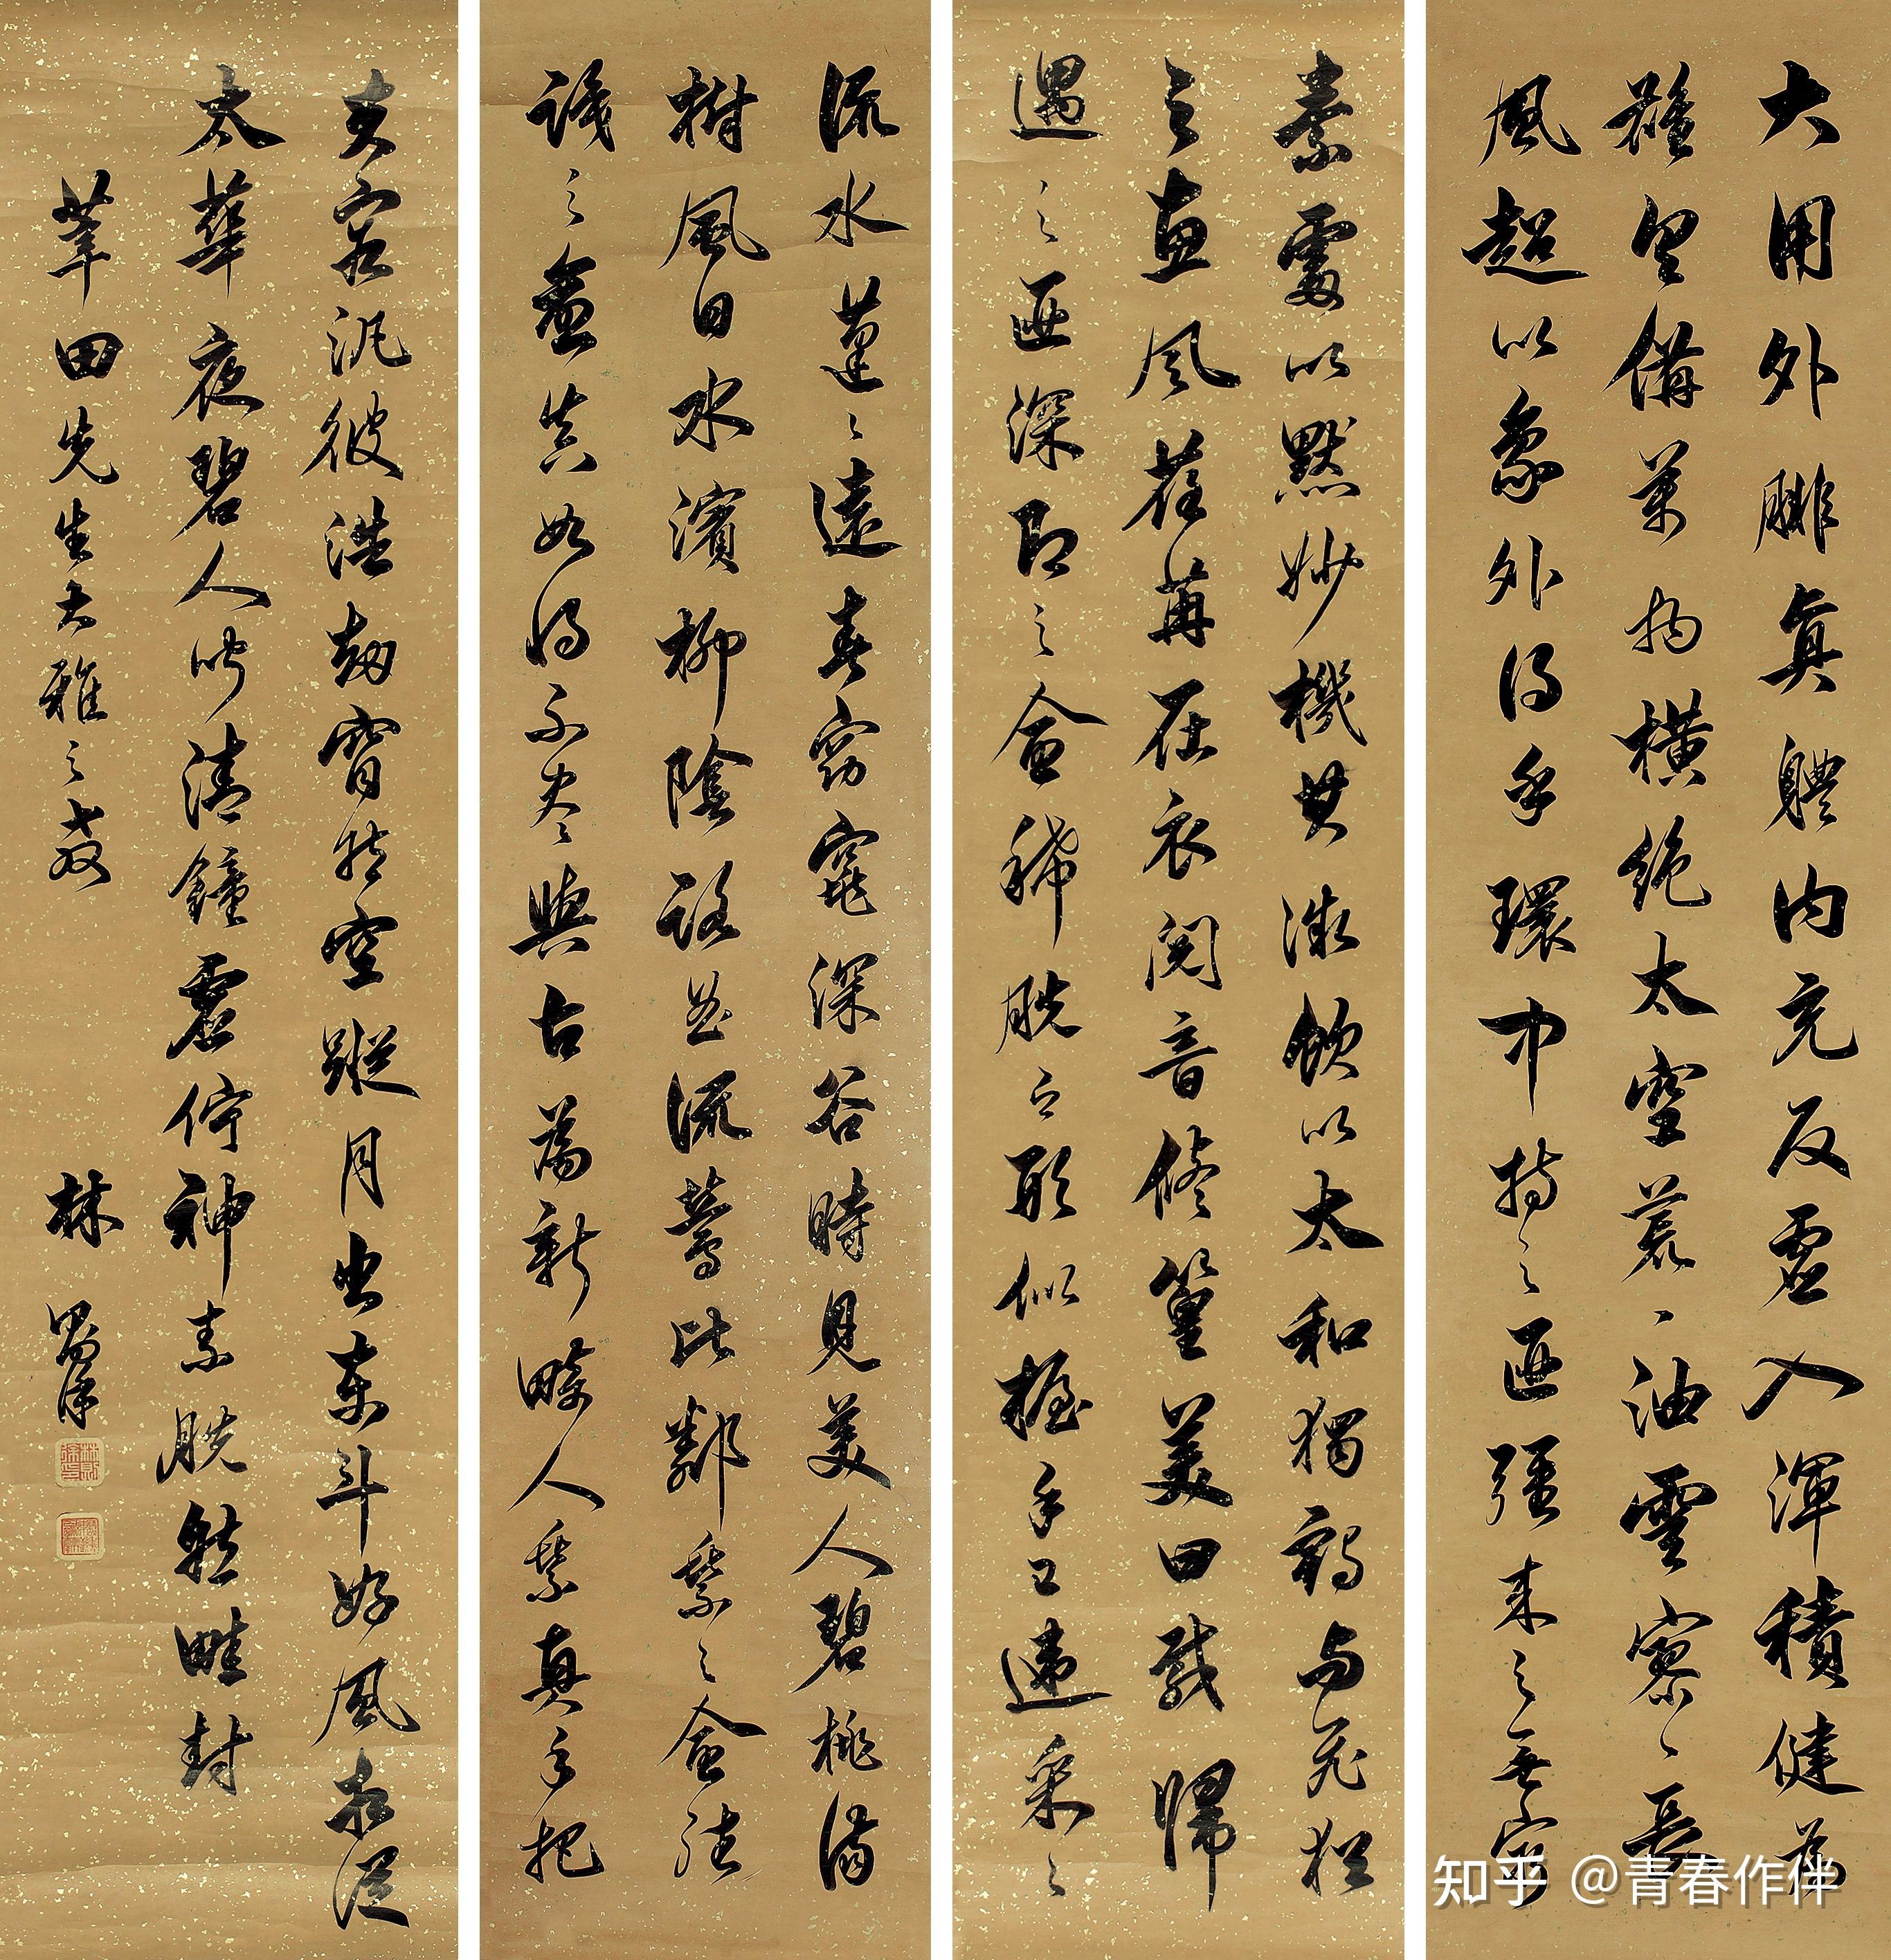 大用外腓真體內充反虛入渾積健為
雄具備萬物橫絕太空荒〻油雲寥〻長
風超以象外得乎環中持之匪强来之無窮
素處以默妙機其微飲以太和獨鶴與飛猶
之惠風荏苒在衣閱音修篁美曰載歸
遇之匪深即之愈稀脫有形似握手已違采〻
流水蓬〻遠春窈窕深谷時見美人碧桃滿
樹風日水濱柳陰路曲流鶯比鄰乘之愈往
識之愈真如將不盡與古為新畸人乘真手把
夫容汎彼浩劫窅然空蹤月出東斗好風相從
太華夜碧人聞清鐘虛佇神素脫然畦封
莘田先生大雅之教
林則徐
林則徐印
知乎 @青春作伴